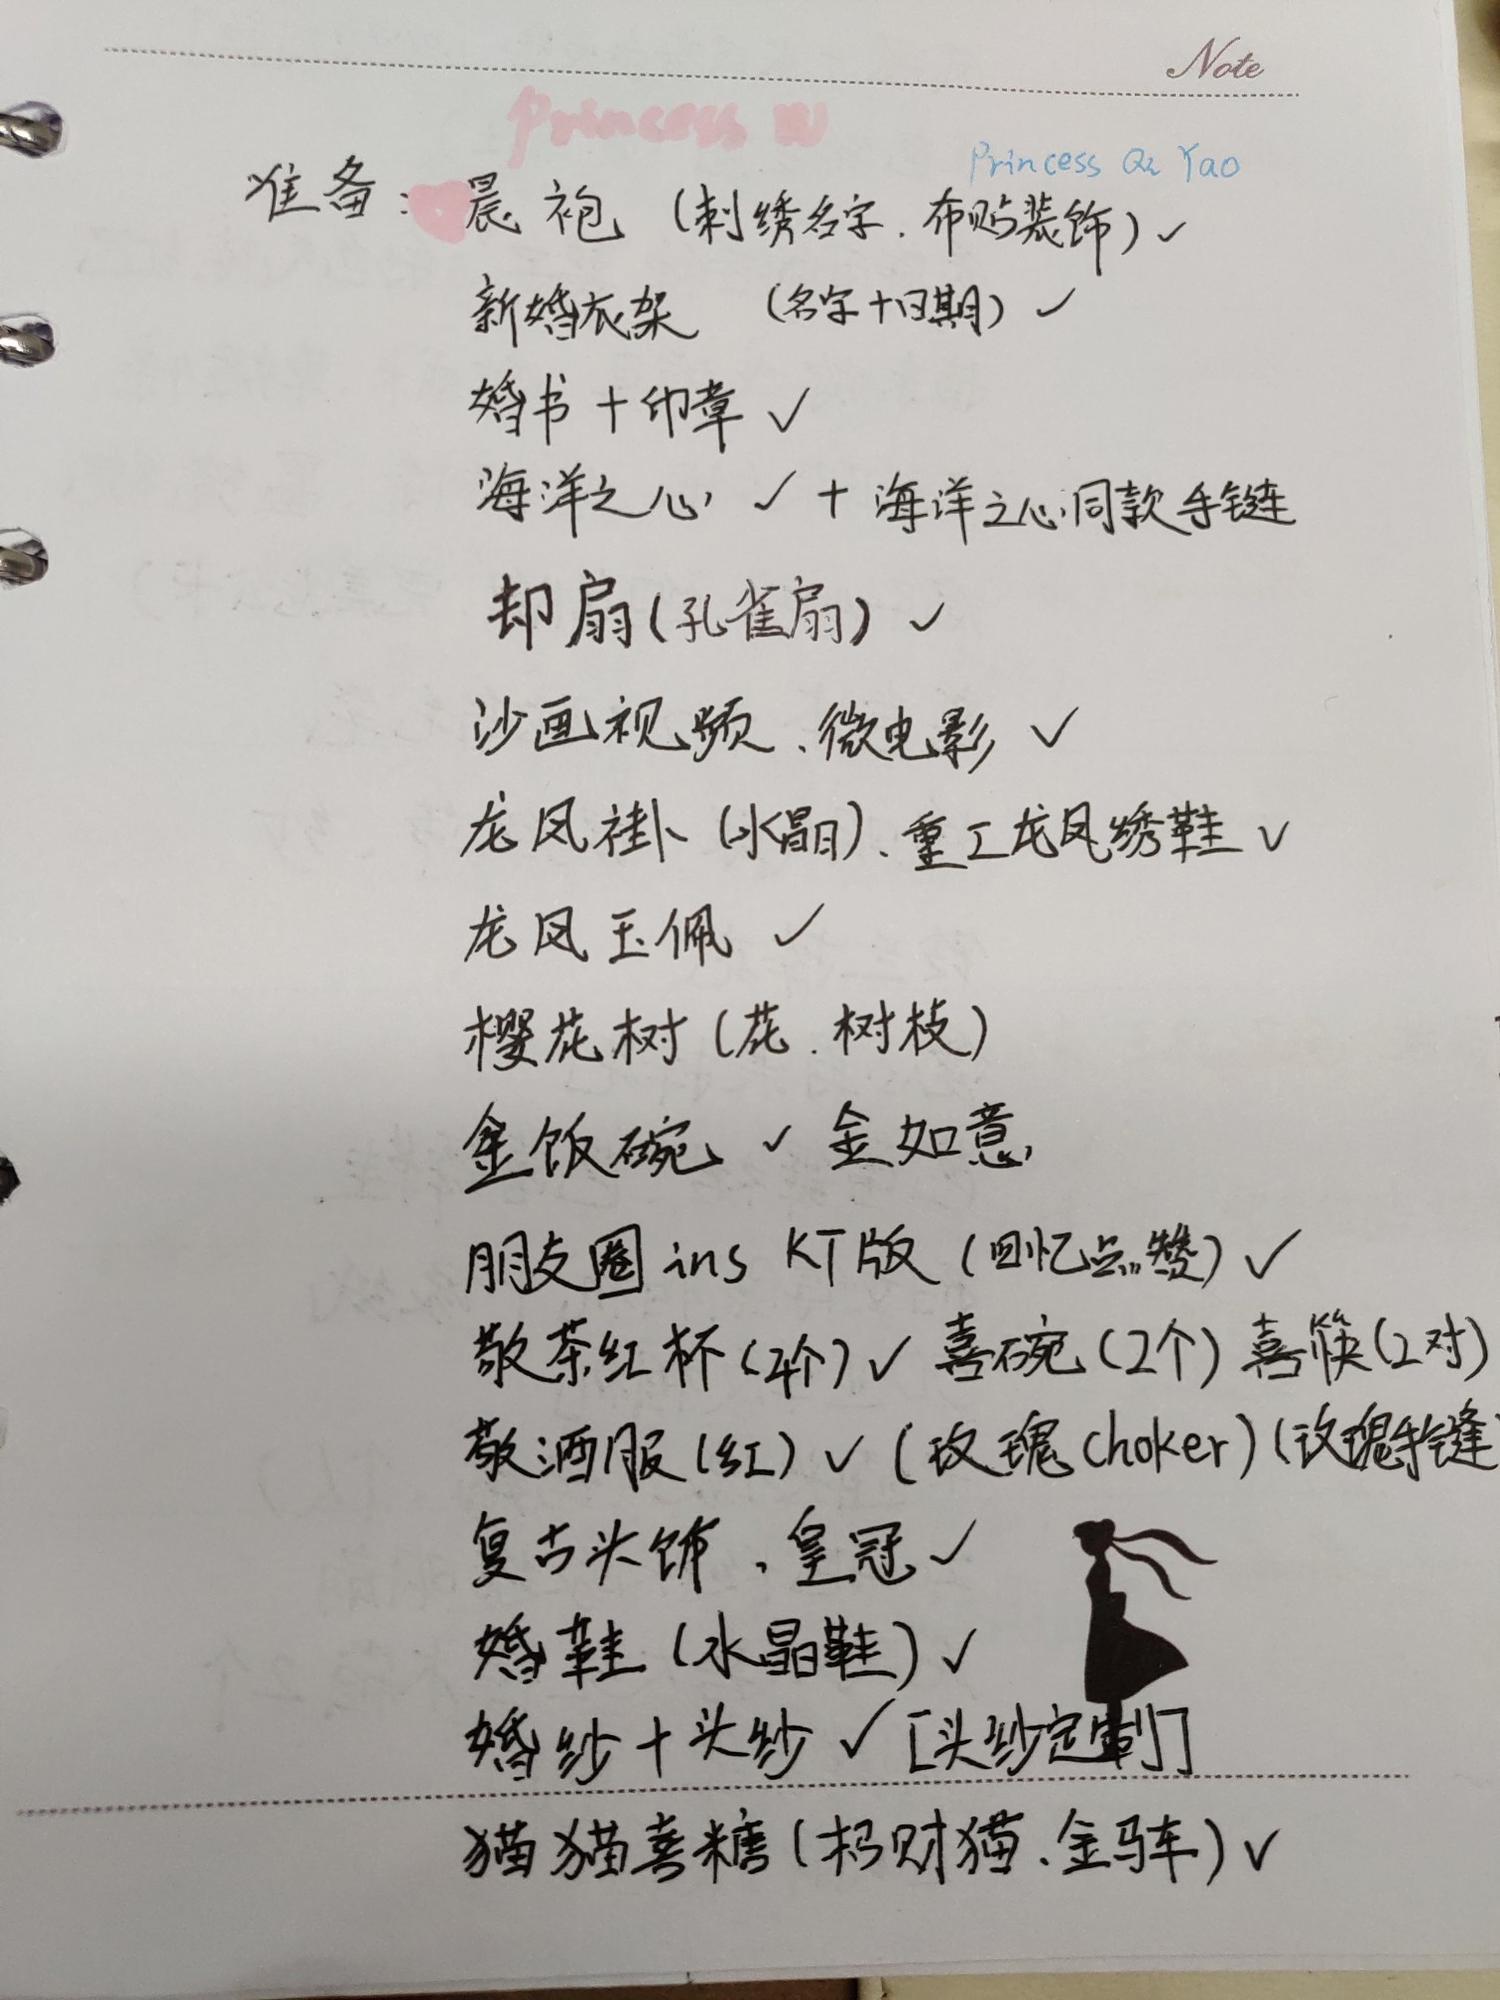 Note
Princess W
Princess Qi Yao
准备:晨袍(刺绣名字.布贴装饰)✓
新婚衣架(名字+日期)✓
婚书+印章✓
海洋之心✓+海洋之心同款手链
却扇(孔雀扇)✓
沙画视频、微电影✓
龙凤褂(水晶)、重工龙凤绣鞋✓
龙凤玉佩✓
樱花树(花.树枝)
金饭碗✓金如意
朋友圈ins KT版(回忆点赞)✓
敬茶红杯(4个)✓喜碗(2个)喜筷(2对)
敬酒服(红)✓(玫瑰choker)(玫瑰手链
复古头饰、皇冠✓
婚鞋(水晶鞋)✓
婚纱+头纱✓[头纱定制]
猫猫喜糖(招财猫、金马车)✓